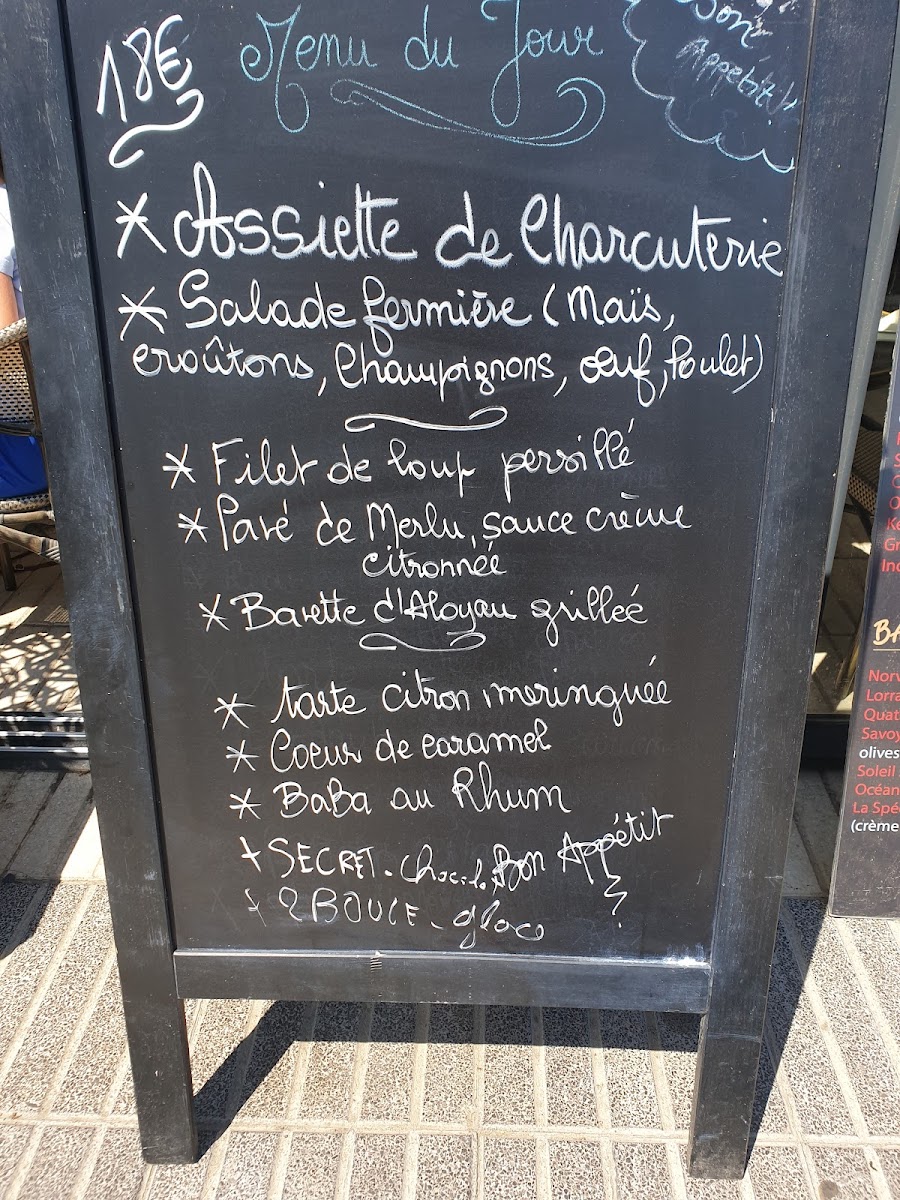 18€
Menu du Jour
Bon
Appétit !
* Assiette de Charcuterie
* Salade fermière (Maïs,
croûtons, Champignons, œuf, Poulet)
* Filet de loup persillé
* Pavé de Merlu, sauce crème
citronnée
* Bavette d'Aloyau grilleé
* tarte citron meringuée
* Coeur de caramel
* BaBa au Rhum
+ SECRET - Bon Appétit
+ 2 BOUCE - glace
Norv
Lorra
Quat
Savoy
olives
Soleil
Océan
La Spé
(crème